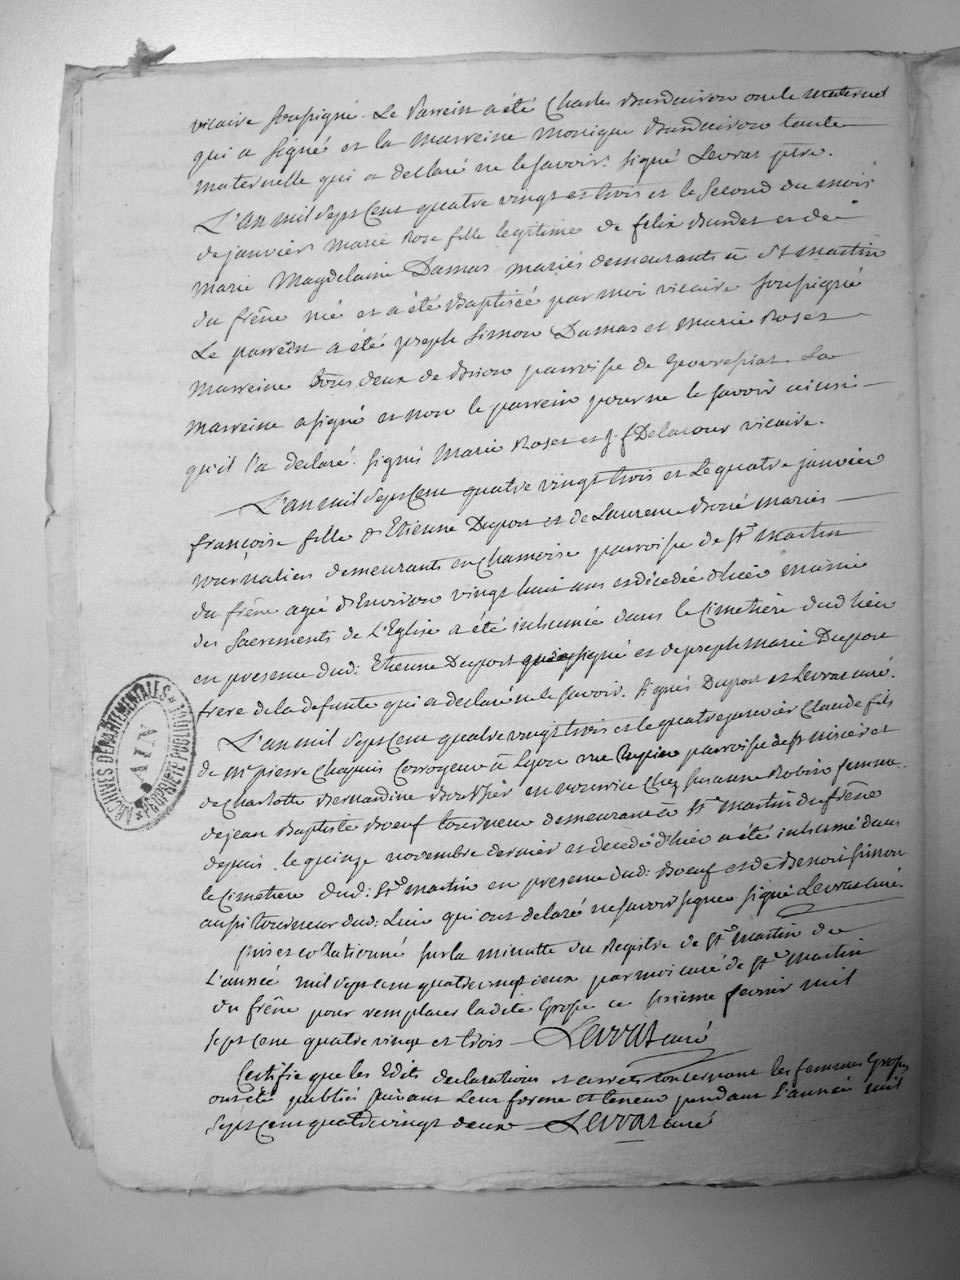 vicaire soussigné. Le Parrein a été Charles Burdairon oncle maternel
qui a signé et la Marreine Monique Burdairon tante
maternelle qui a declaré ne le savoir. signé Levrat ptre.
L'an mil sept cent quatre vingt et trois et le second du mois
de janvier Marie Rose fille legitime de felix Burdet et de
marie Magdelaine Damas mariés demeurants à St martin
du frêne née et a été Baptisée par moi vicaire soussigné
Le parrein a été joseph Simon Damas et marie Roset
Marreine tous deux de Brion parroisse de Geovressiat. La
marreine a signé et non le parrein pour ne le savoir ainsi
qu'il l'a declaré. signés Marie Roset et j. f Delacour vicaire.
L'an mil sept cent quatre vingt trois et le quatre janvier
françoise fille d'Etienne Duport et de Laurence mariés
journaliers demeurants en Chamoise parroisse de St martin
du frêne agée d'Environ vingt huit ans et décedée d'hier munie
des Sacrements de l'Eglise a été inhumée dans le Cimetière dud. lieu
en presence dud: Etienne Duport qui a signé et de joseph marie Duport
frere de la defunte qui a declaré ne le savoir. signés Duport et Levrat curé.
L'an mil sept cent quatre vingt trois et le quatre janvier Claude fils
de Mr pierre Chapuis Corroyeur à Lyon rue parroisse de St nicier et
de Charlotte Bernardine en nourrice chez Susanne Robin femme
de jean Baptiste Boeuf tourneur demeurant à St martin du frêne
depuis le quinze novembre dernier et decedé d'hier a été inhumé dans
le Cimetiere dud: St martin en presence dud: Boeuf et de Benoit Simon
aussi tourneur dud: Lieu qui ont declaré ne savoir signer signé Levrat curé.
pris et collationné sur la minutte du Registre de St martin de
L'année mil sept cent quatre vingt deux par moi curé de St martin
du frêne pour remplacer la dite Grosse ce sixieme fevrier mil
sept cent quatre vingt et trois Levrat curé
Certifie que les Edits declarations et arrets concernant les femmes Grosses
ont été publiés suivant leur forme et teneur pendant l'année mil
sept cent quatre vingt deux Levrat curé
ARCHIVES DÉPARTEMENTALES
AIN